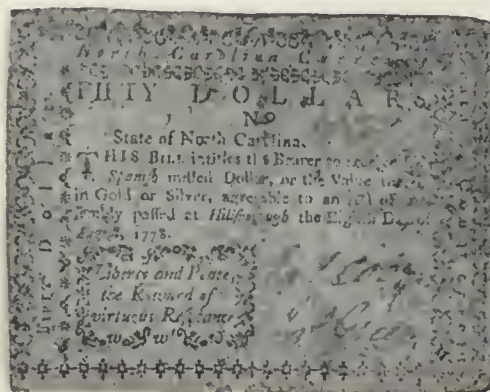 North Carolina Currency
FIFTY DOLLARS
No
State of North Carolina.
THIS BILL intitles the Bearer to receive
Spanish milled Dollars, or the Value thereof
in Gold or Silver, agreeable to an Act of
sembly passed at Hillsborough the Eighth Day of
1778.
Liberty and Peace
the Reward of
virtuous Resistance
Fifty Dollars